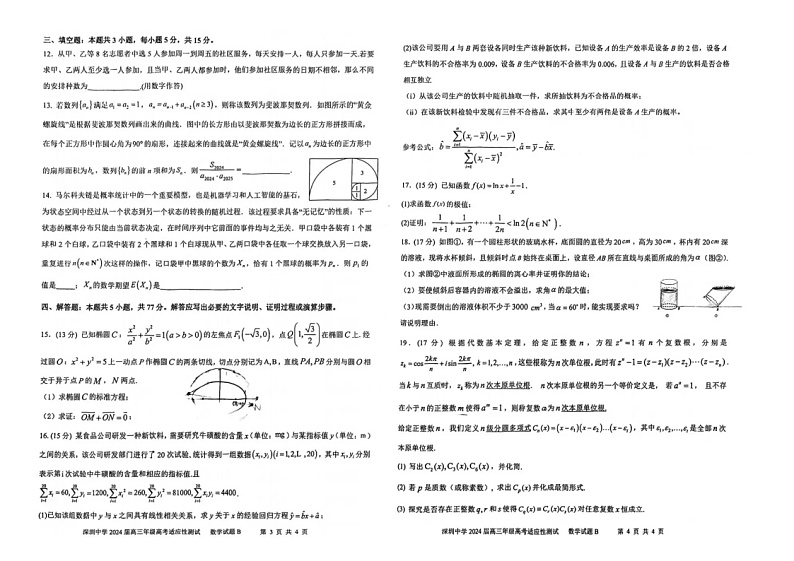 三、填空题：本题共3小题，每小题5分，共15分。
12. 从甲、乙等8名志愿者中选5人参加周一到周五的社区服务，每天安排一人，每人只参加一天.若要
求甲、乙两人至少选一人参加，且当甲、乙两人都参加时，他们参加社区服务的日期不相邻，那么不同
的安排种数为____________.(用数字作答)
13. 若数列{aₙ}满足a₁=a₂=1，aₙ=aₙ₋₁+aₙ₋₂(n≥3)，则称该数列为斐波那契数列. 如图所示的"黄金
螺旋线"是根据斐波那契数列画出来的曲线. 图中的长方形由以斐波那契数为边长的正方形拼接而成，
在每个正方形中作圆心角为90°的扇形，连接起来的曲线就是"黄金螺旋线". 记以aₙ为边长的正方形中
的扇形面积为bₙ，数列{bₙ}的前n项和为Sₙ. 则 S₂₀₂₄/(a₂₀₂₄·a₂₀₂₅) ____________.
5 3 2 1 1
14. 马尔科夫链是概率统计中的一个重要模型，也是机器学习和人工智能的基石，
为状态空间中经过从一个状态到另一个状态的转换的随机过程. 该过程要求具备"无记忆"的性质：下一
状态的概率分布只能由当前状态决定，在时间序列中它前面的事件均与之无关. 甲口袋中各装有1个黑
球和2个白球，乙口袋中装有2个黑球和1个白球现从甲、乙两口袋中各任取一个球交换放入另一口袋，
重复进行n(n∈N*)次这样的操作，记口袋甲中黑球的个数为Xₙ，恰有1个黑球的概率为pₙ. 则p₁的
值是_____；Xₙ的数学期望E(Xₙ)是____________.
四、解答题：本题共5小题，共77分。解答应写出必要的文字说明、证明过程或演算步骤。
15. (13分) 已知椭圆C：x²/a²+y²/b²=1(a>b>0)的左焦点F₁(-√3,0)，点Q(1,√3/2)在椭圆C上. 经
过圆O：x²+y²=5上一动点P作椭圆C的两条切线，切点分别记为A,B，直线PA,PB分别与圆O相
交于异于点P的M，N两点.
（1）求椭圆C的标准方程；
（2）求证：OM+ON=0；
16. (15分) 某食品公司研发一种新饮料，需要研究牛磺酸的含量x(单位：mg)与某指标值y(单位：m)
之间的关系，该公司研发部门进行了20次试验. 统计得到一组数据(xᵢ,yᵢ)(i=1,2,L ,20)，其中xᵢ,yᵢ分别
表示第i次试验中牛磺酸的含量和相应的指标值.且
∑xᵢ=60,∑yᵢ=1200,∑xᵢ²=260,∑yᵢ²=81000,∑xᵢyᵢ=4400.
(1)已知该组数据中y与x之间具有线性相关关系，求y关于x的经验回归方程ŷ=b̂x+â；
深圳中学2024届高三年级高考适应性测试 数学试题B 第 3 页 共 4 页
(2)该公司要用A与B两套设备同时生产该种新饮料，已知设备A的生产效率是设备B的2倍，设备A
生产饮料的不合格率为0.009，设备B生产饮料的不合格率为0.006，且设备A与B生产的饮料是否合格
相互独立
（i）从该公司生产的饮料中随机抽取一件，求所抽饮料为不合格品的概率；
（ii）在该新饮料检验中发现有三件不合格品，求其中至少有两件是设备A生产的概率。
参考公式：b̂=∑(xᵢ-x̄)(yᵢ-ȳ)/∑(xᵢ-x̄)²,â=ȳ-b̂x̄.
17. (15分) 已知函数f(x)=ln x+1/x-1.
(1)求函数f(x)的极值；
(2)证明：1/(n+1)+1/(n+2)+⋯+1/(2n)<ln2(n∈N*).
18. (17分) 如图①，有一个圆柱形状的玻璃水杯，底面圆的直径为20cm，高为30cm，杯内有20cm深
的溶液，现将水杯倾斜，且倾斜时点B始终在桌面上，设直径AB所在直线与桌面所成的角为α(图②).
（1）求图②中液面所形成的椭圆的离心率并证明你的结论；
（2）要使倾斜后容器内的溶液不会溢出，求角α的最大值；
（3)现需要倒出的溶液体积不少于3000 cm³,当α=60°时,能实现要求吗？
请说明理由.
19. (17分) 根据代数基本定理，给定正整数n，方程zⁿ=1有n个复数根，分别是
zₖ=cos(2kπ/n)+isin(2kπ/n), k=1,2,...,n,这些根称为n次单位根，此时有zⁿ-1=(z-z₁)(z-z₂)⋯(z-zₙ).
当k与n互质时，zₖ称为n次本原单位根. n次本原单位根的另一个等价定义是，若aⁿ=1，且不存
在小于n的正整数m使得aᵐ=1，则称复数a为n次本原单位根.
给定正整数n，我们定义n级分圆多项式Cₙ(x)=(x-ε₁)(x-ε₂)...(x-εₛ)，其中ε₁,ε₂,...,εₛ是全部n次
本原单位根。
(1) 写出C₂(x),C₃(x),C₆(x)，并化简.
(2) 若p是质数（或称素数），求出Cₚ(x)并化成最简形式.
(3) 探究是否存在正整数q,r和s使得C_q(x)=Cᵣ(x)Cₛ(x)对任意复数x恒成立.
深圳中学2024届高三年级高考适应性测试 数学试题B 第 4 页 共 4 页